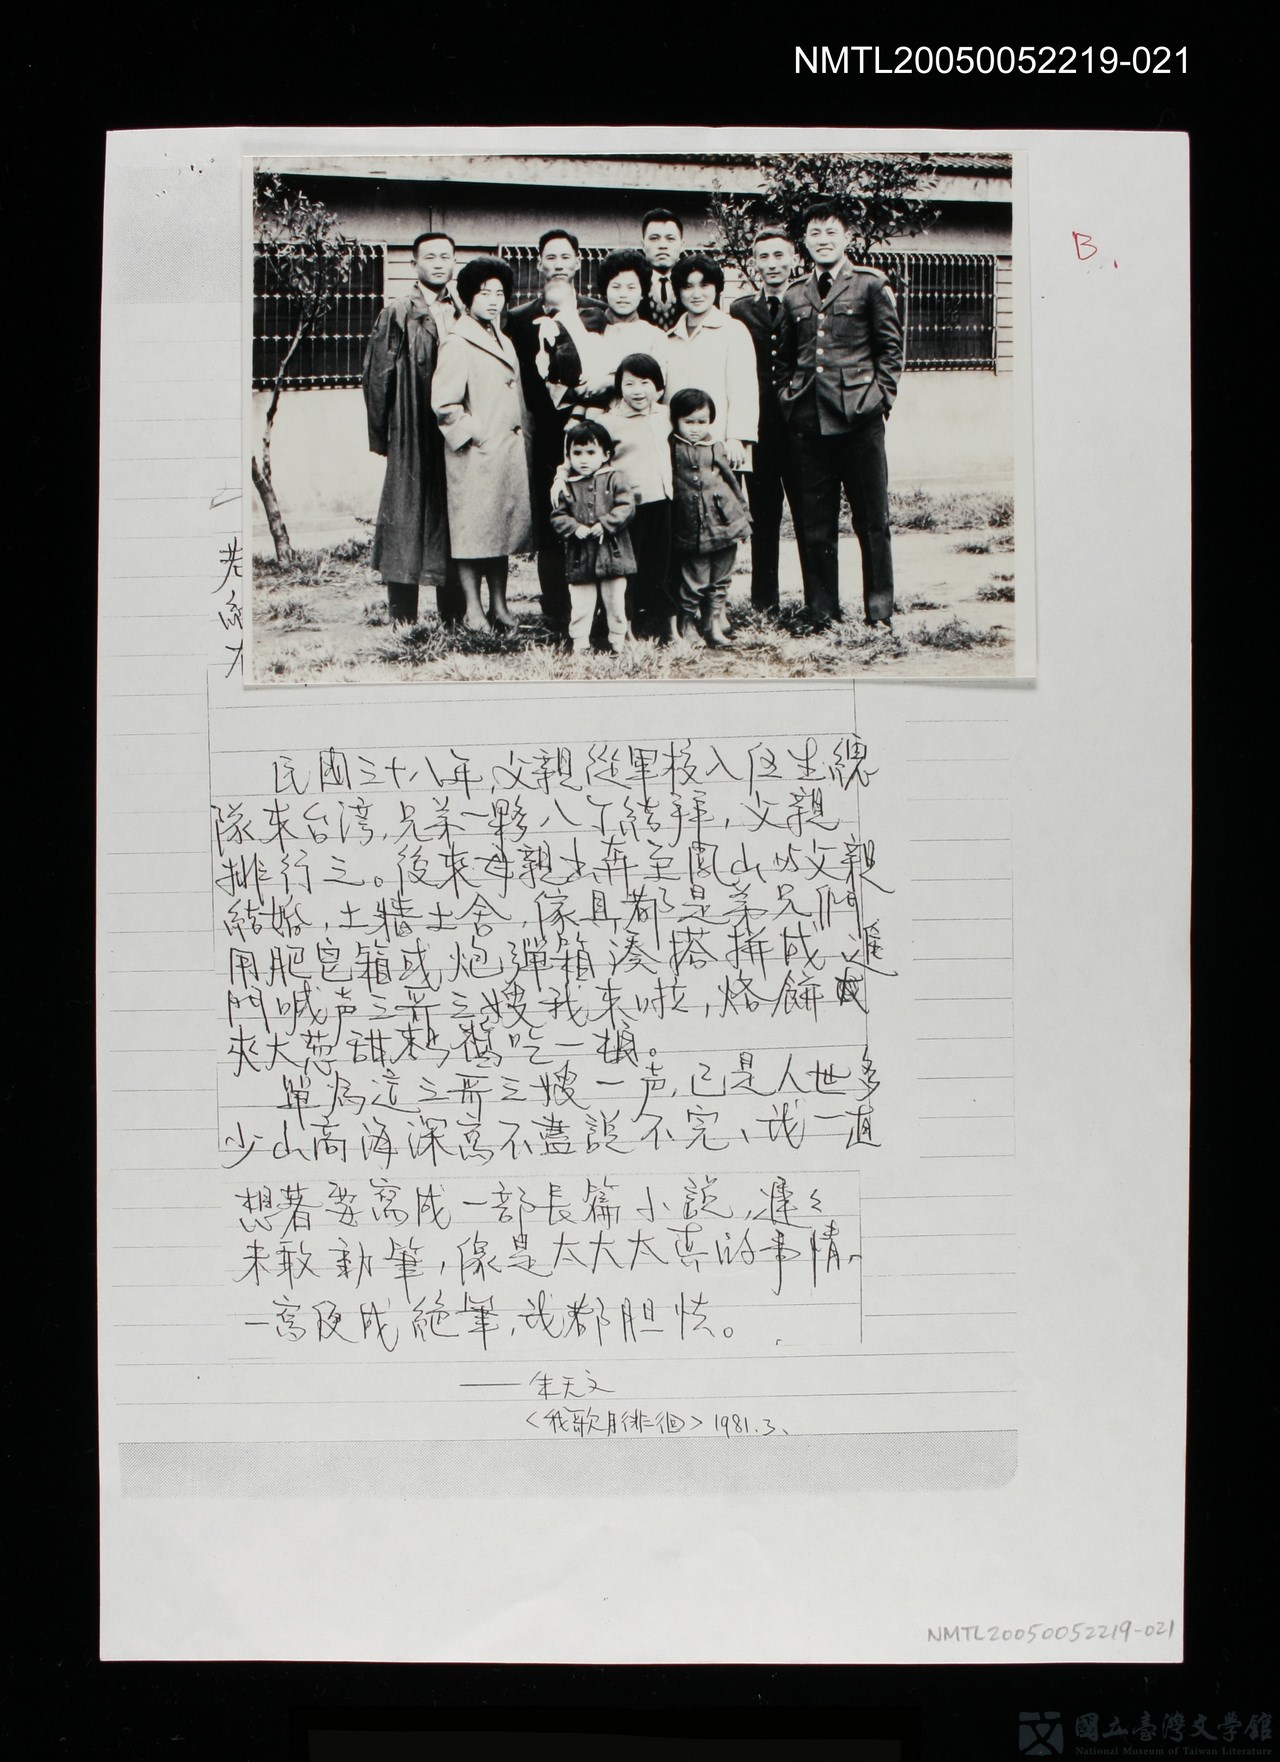 NMTL20050052219-021
B.
民國三十八年,父親從軍校入伍生總
隊來台湾,兄弟一夥八个結拜,父親
排行三。後來母親出奔至鳳山與父親
結婚,土牆土舍,傢具都是弟兄們
用肥皂箱或炮彈箱湊搭拼成,進
門喊声三哥三嫂我來啦,烙餅
夾大葱甜麵醬吃一頓。
單為這三哥三嫂一声,已是人世多
少山高海深寫不盡說不完、我一直
想著要寫成一部長篇小說,遲々
未敢動筆,像是太大太真的事情,
一寫便成絕筆,我都胆怯。
——朱天文
〈我歌月徘徊〉1981.3、
NMTL20050052219-021
國立臺灣文學館
National Museum of Taiwan Literature